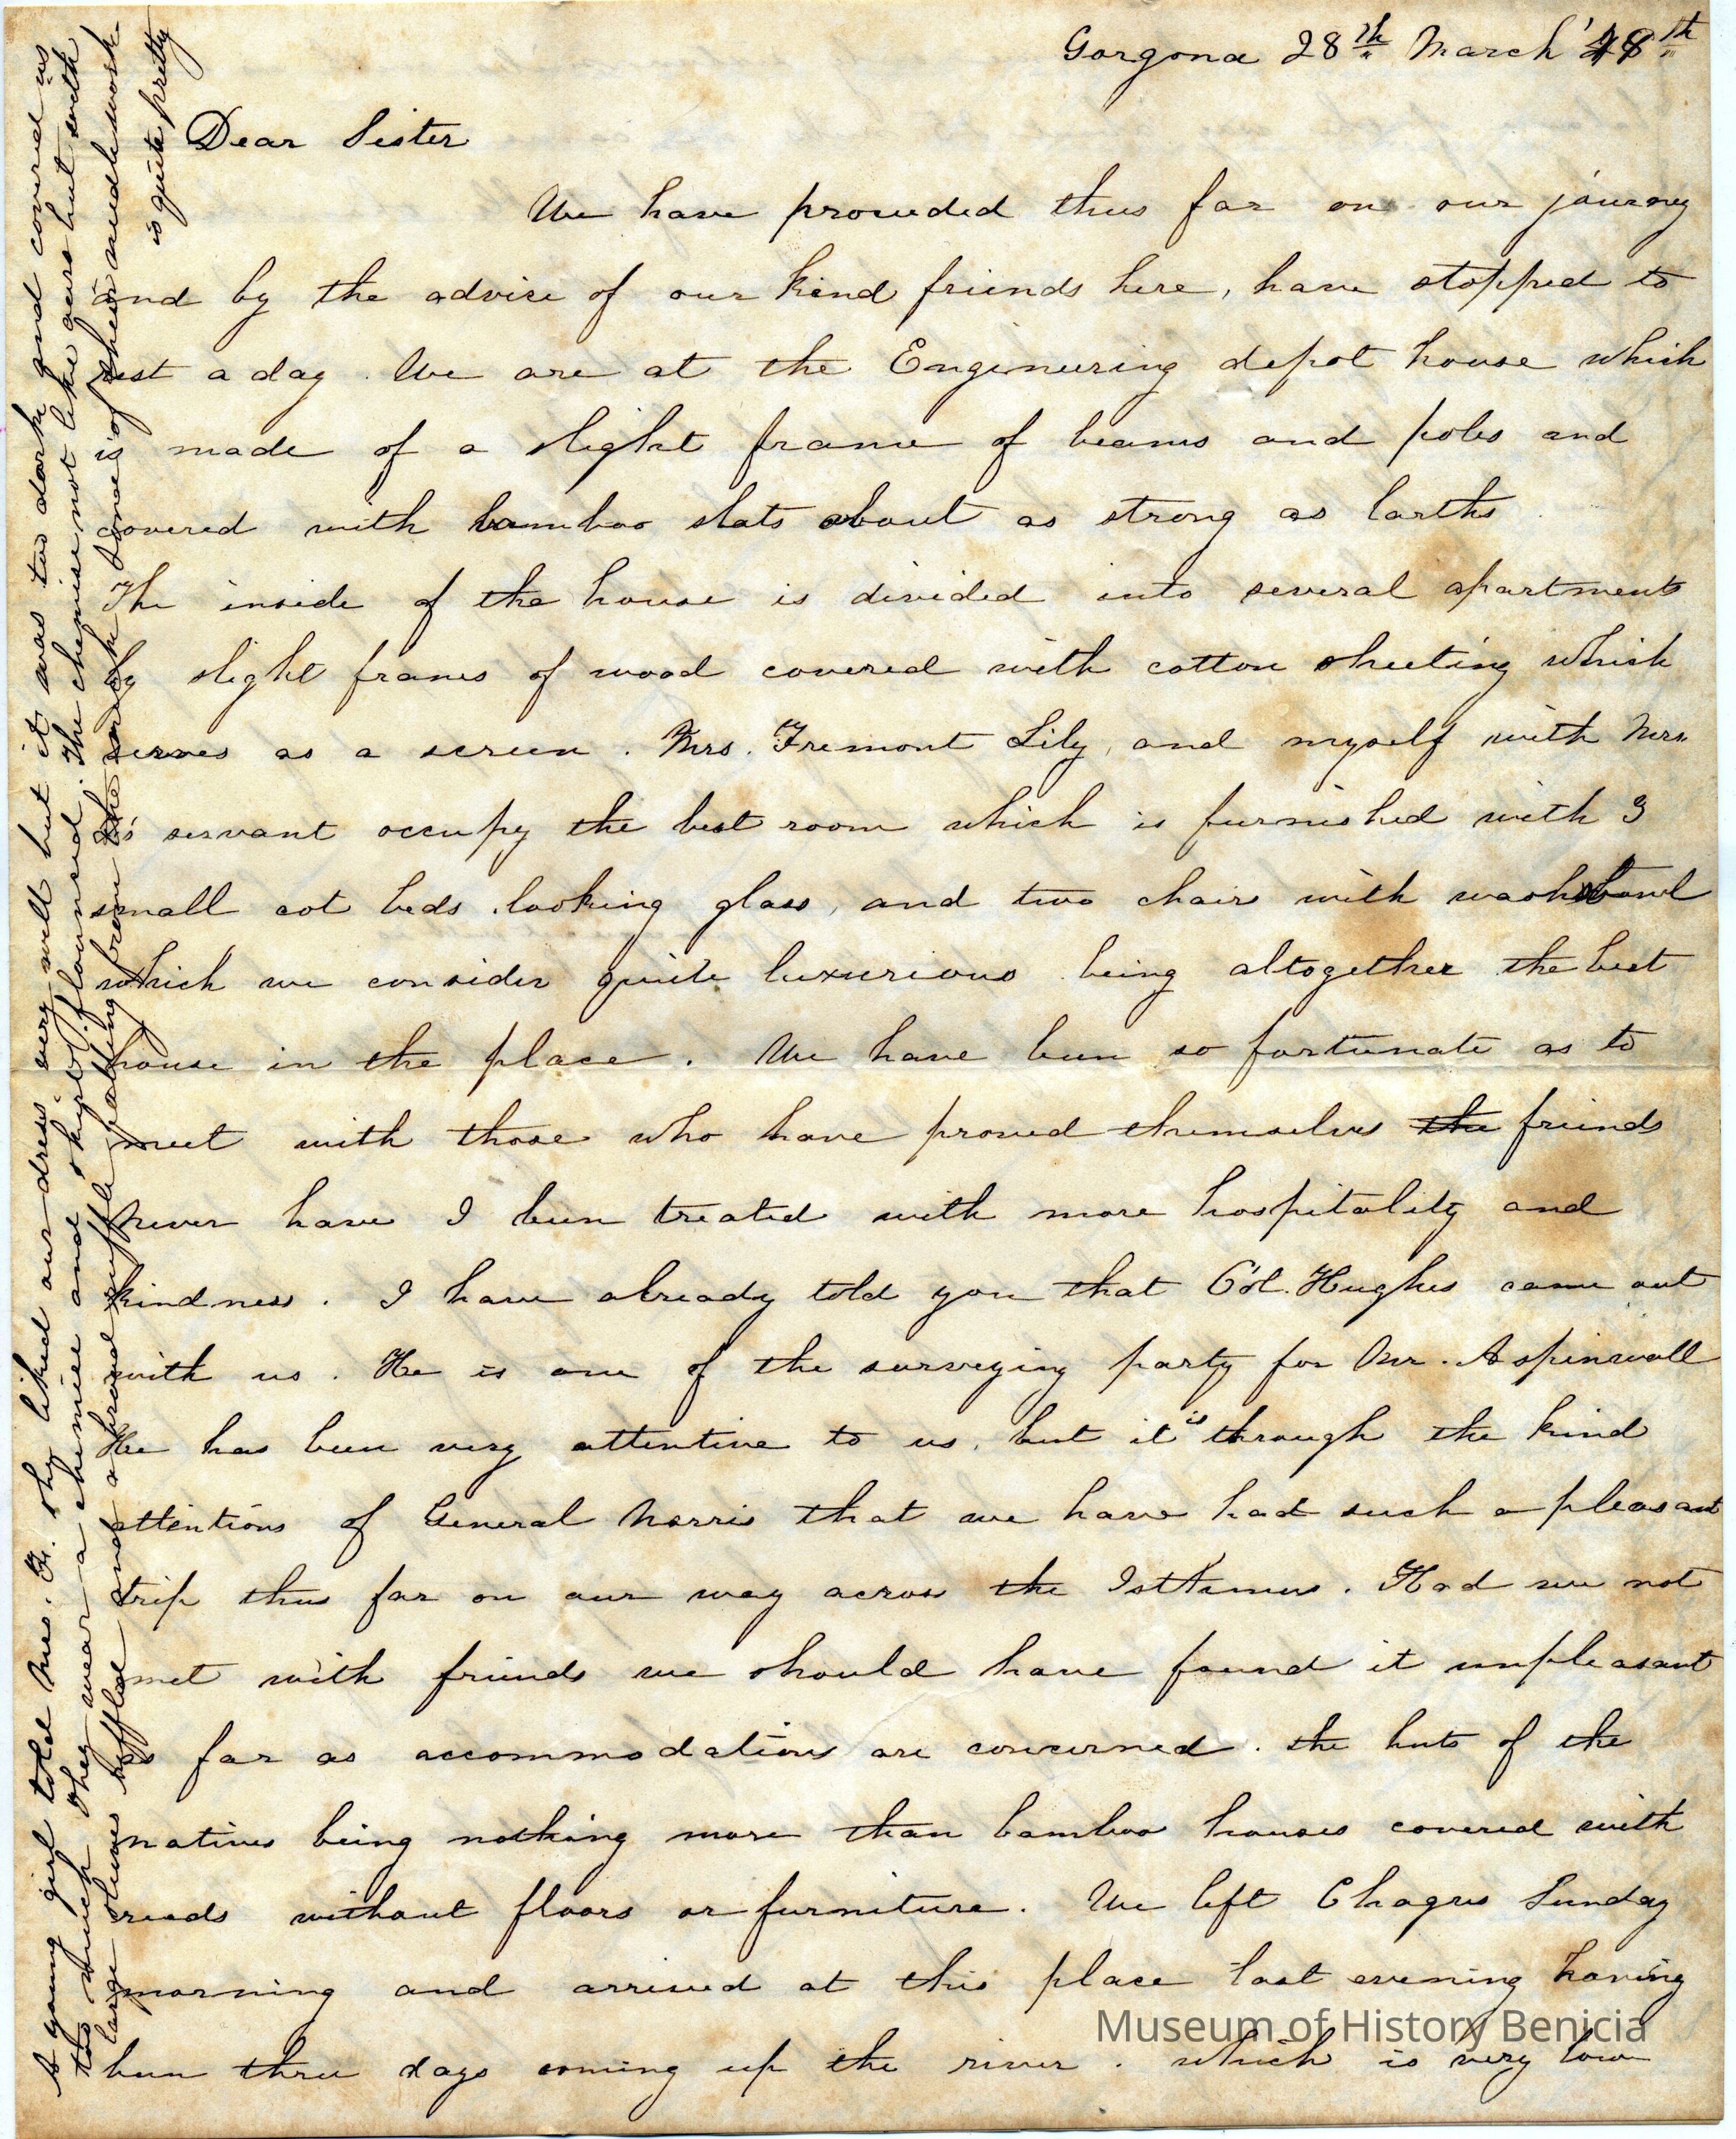 Gorgona 28th March '48th
Dear Sister
We have proceeded thus far on our journey
and by the advice of our kind friends here, have stopped to
rest a day. We are at the Engineering depot house which
is made of a slight frame of beams and poles and
covered with bamboo slats about as strong as larths
The inside of the house is divided into several apartments
by slight frames of wood covered with cotton sheeting which
serves as a screen. Mrs. Fremont Lily, and myself with Mrs.
F's servant occupy the best room which is furnished with 3
small cot beds looking glass, and two chairs with washbowl
which we consider quite luxurious being altogether the best
house in the place. We have been so fortunate as to
meet with those who have proved themselves the friends
never have I been treated with more hospitality and
kindness. I have already told you that Col. Hughes came out
with us. He is one of the surveying party for Mr. Aspinwall
He has been very attentive to us, but it is through the kind
attentions of General Norris that we have had such a pleasant
trip thus far on our way across the Isthmus. Had we not
met with friends we should have found it unpleasant
as far as accommodations are concerned. the huts of the
natives being nothing more than bamboo houses covered with
reeds without floors or furniture. We left Chagres Sunday
morning and arrived at this place last evening having
been three days coming up the river. which is very low
A young girl told Mrs. Fr. she liked our dress very well but it was too dark and covered us
too much They wear a chemise and skirt flounced. The chemise not like ours but with
large sleeves ruffled and a broad ruffle falling from the neck. Some of their needlework
is quite pretty
Museum of History Benicia